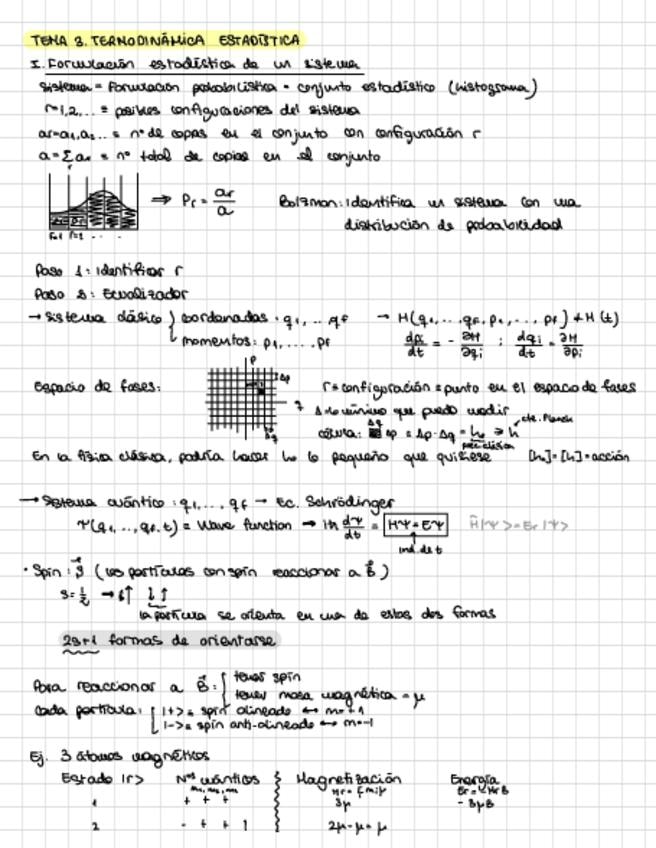 TEMA 3. TERMODINÁMICA ESTADÍSTICA
I. Formulación estadística de un sistema
Sistema = Formulación probabilística = conjunto estadístico (histograma)
r=1,2,... = posibles configuraciones del sistema
ar=a1,a2... = nº de copias en el conjunto con configuración r
a = Σ ar = nº total de copias en el conjunto
r
⇒ Pr = ar/a
Bolzman: Identifica un sistema con una
distribución de probabilidad
r=1 r=2 . . .
Paso 1: Identificar r
Paso 2: Ecualizador
→ Sistema clásico { coordenadas: q1, ... qf → H(q1, ..., qf, p1, ..., pf) ≠ H(t)
momentos: p1, ..., pf
dpi/dt = - ∂H/∂qi ; dqi/dt = ∂H/∂pi
Espacio de fases:
p
Δp
q
Δq
r = configuración = punto en el espacio de fases
lo mínimo que puedo medir
célula: Δp = Δp·Δq = h0 ≥ h
Δq
cte. Planck
precisión
En la física clásica, podría hacer h0 lo pequeño que quisiese [h0]=[h]=acción
→ Sistema cuántico: q1, ..., qf → Ec. Schrödinger
Ψ(q1, ..., qf, t) = Wave function → iħ dΨ/dt = HΨ = EΨ
Ĥ|Ψ> = Er|Ψ>
ind. de t
• Spin: S (las partículas con spin reaccionan a B)
s = 1/2 → ↑ ↓↑
la partícula se orienta en una de estas dos formas
2s+1 formas de orientarse
Para reaccionar a B: { tener spin
tener masa magnética = μ
Cada partícula: |+> = spin alineado ↔ m=+1
|-> = spin anti-alineado ↔ m=-1
Ej. 3 átomos magnéticos
Estado |r> Nos cuánticos Magnetización Energía
m1, m2, m3 Mr = Σ miμ Er = -MrB
1 + + + 3μ -3μB
2 - + + 2μ-μ = μ